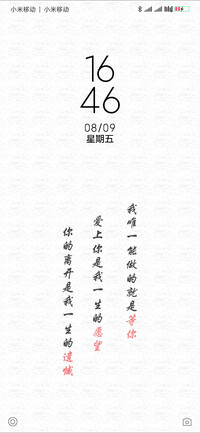 小米移动 | 小米移动
16
46
08/09
星期五
我唯一能做的就是等你
爱上你是我一生的愿望
你的离开是我一生的遗憾